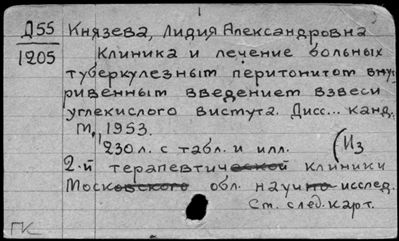 Д55
1205
Князева, Лидия Александровна
Клиника и лечение больных
туберкулезным перитонитом внут-
ривенным введением взвеси
углекислого висмута. Дисс... канд.
М., 1953.
230 л. с табл. и илл. (Из
2-й терапевтической клиники
Московского обл. научно исслед.
См. след. карт.
ГК